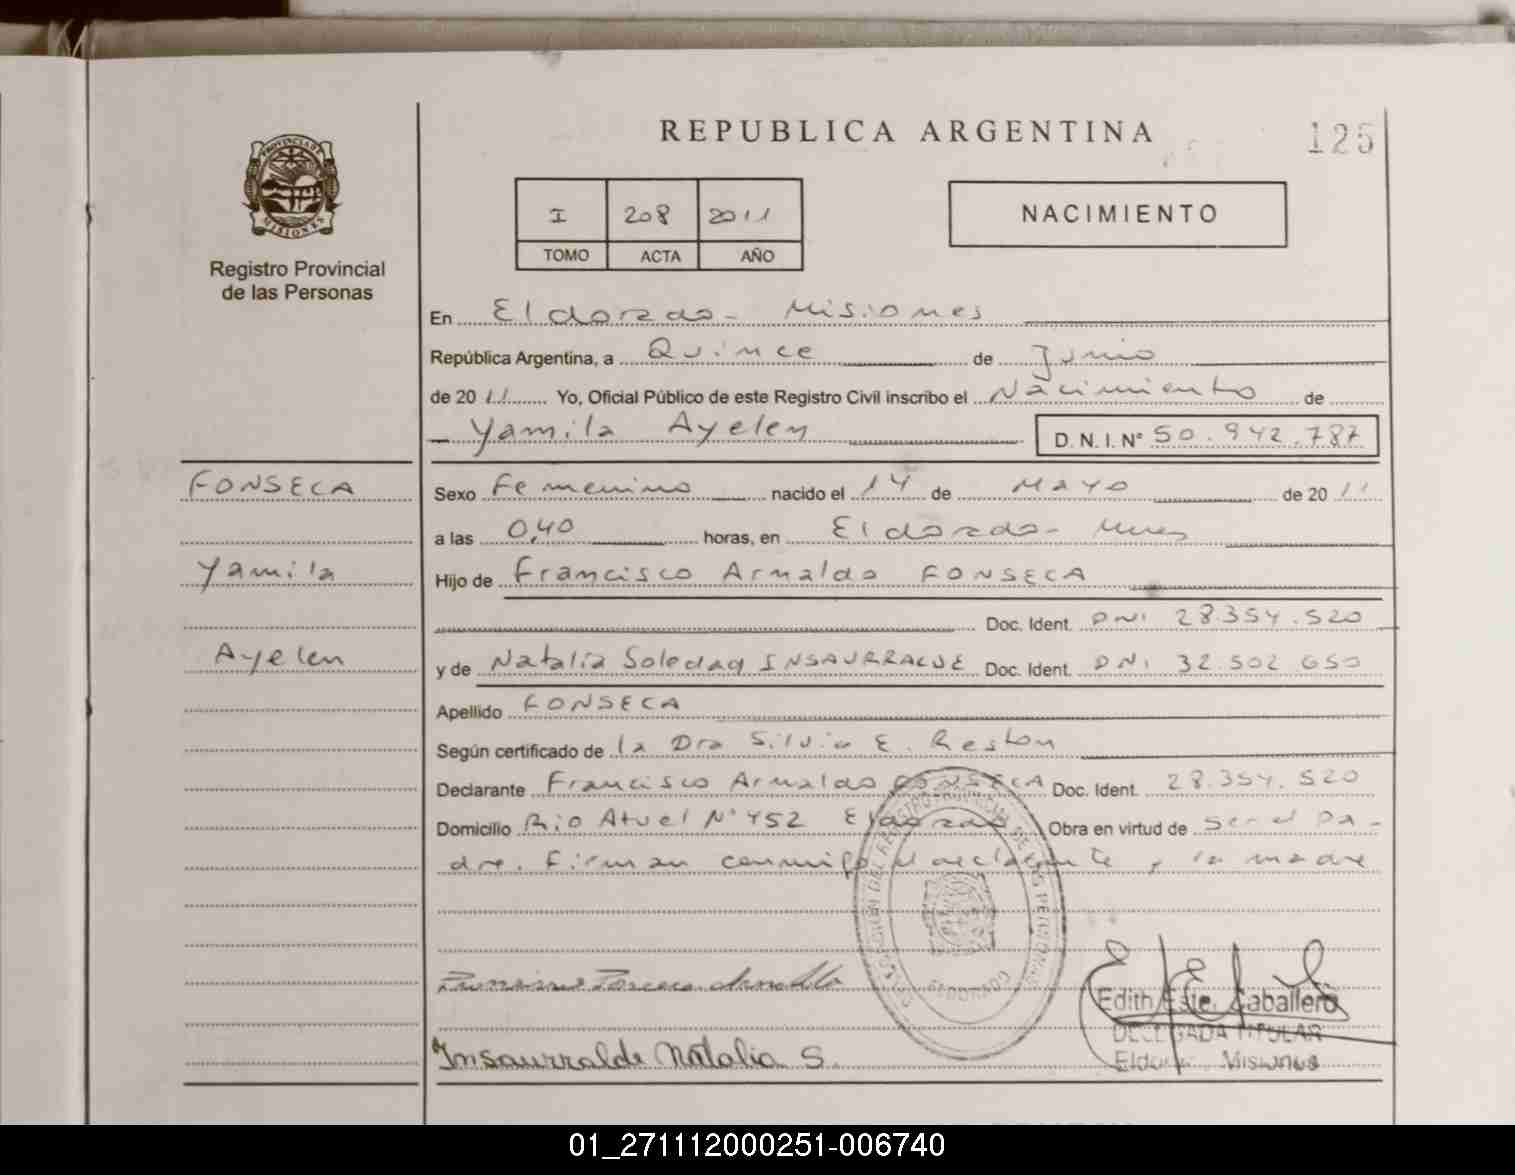 REPUBLICA ARGENTINA
125
PROVINCIA DE
MISIONES
Registro Provincial
de las Personas
I 208 2011
TOMO ACTA AÑO
NACIMIENTO
En Eldorado - Misiones
República Argentina, a Quince de Junio
de 2011 Yo, Oficial Público de este Registro Civil inscribo el Nacimiento de
Yamila Ayelen D. N. I. Nº 50.942.787
FONSECA
Sexo Femenino nacido el 14 de Mayo de 2011
a las 0,40 horas, en Eldorado - Mnes
Yamila
Hijo de Francisco Arnaldo FONSECA
Doc. Ident. DNI 28.354.520
Ayelen
y de Natalia Soledad INSAURRALDE Doc. Ident. DNI 32.502.650
Apellido FONSECA
Según certificado de la Dra Silvia E. Reston
Declarante Francisco Arnaldo FONSECA Doc. Ident. 28.354.520
Domicilio Rio Atuel Nº 452 Eldorado Obra en virtud de ser el pa-
dre. Firman conmigo el declarante y la madre
DEL REGISTRO PROVINCIAL DE LAS PERSONAS
ELDORADO
Arnaldo
Insaurralde Natalia S.
Edith Este. Caballero
DELEGADA TITULAR
Eldorado Misiones
01_271112000251-006740